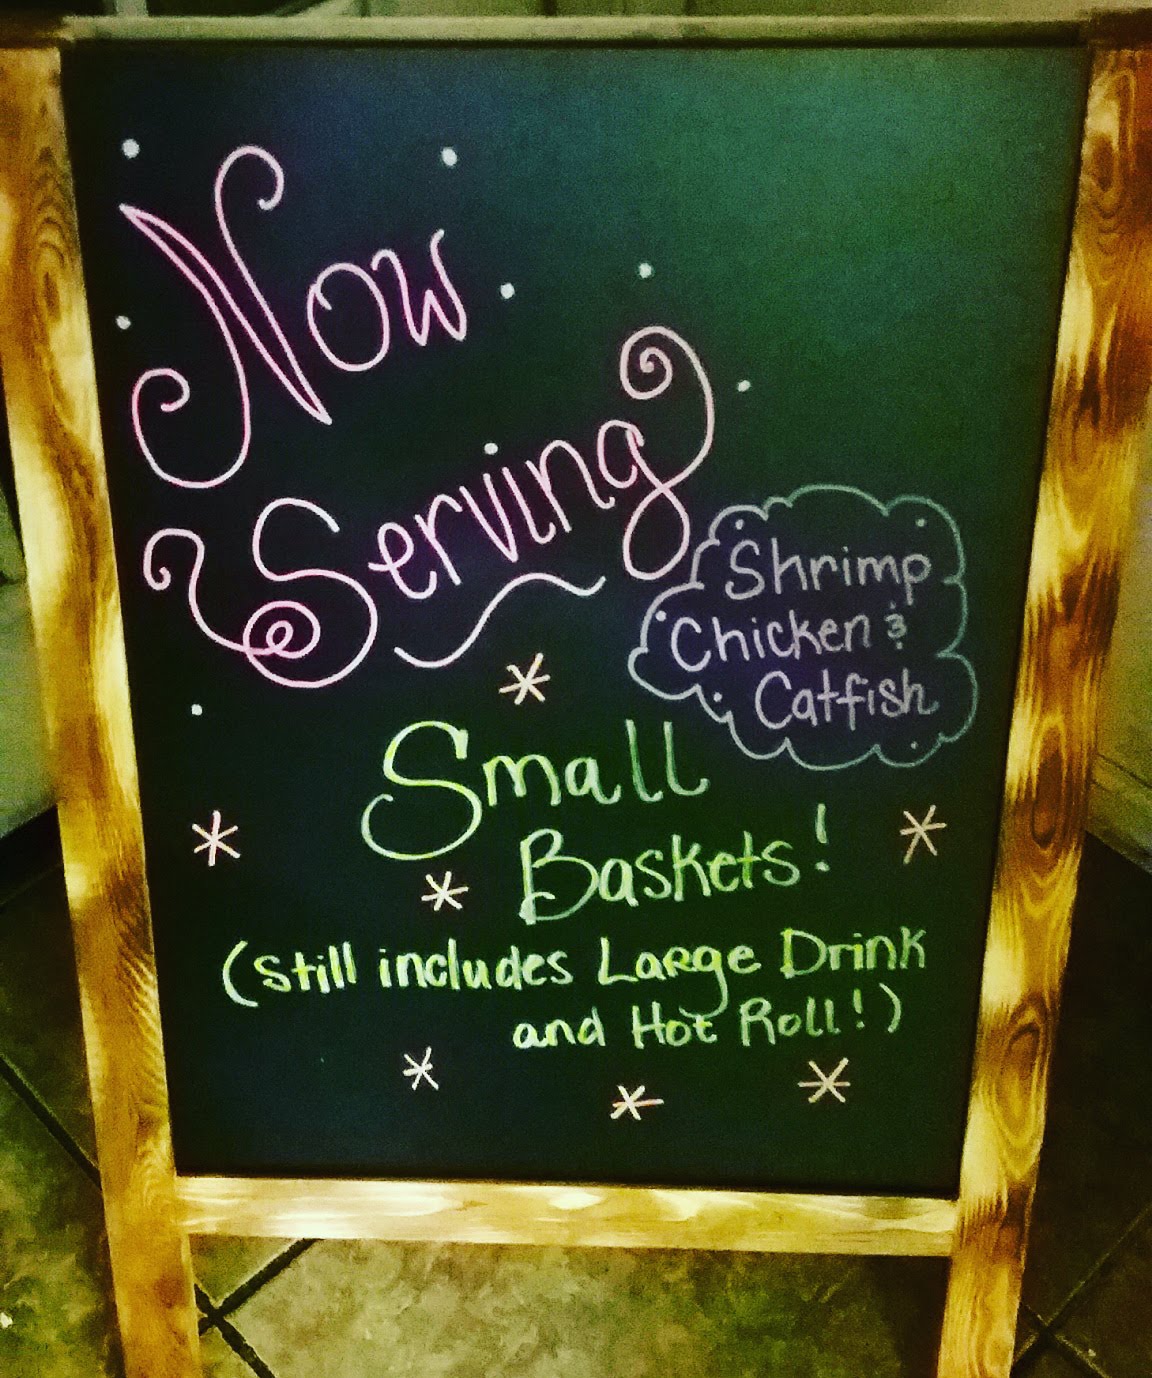 Now
Serving
Shrimp
Chicken &
Catfish
Small
Baskets!
(Still includes Large Drink
and Hot Roll!)